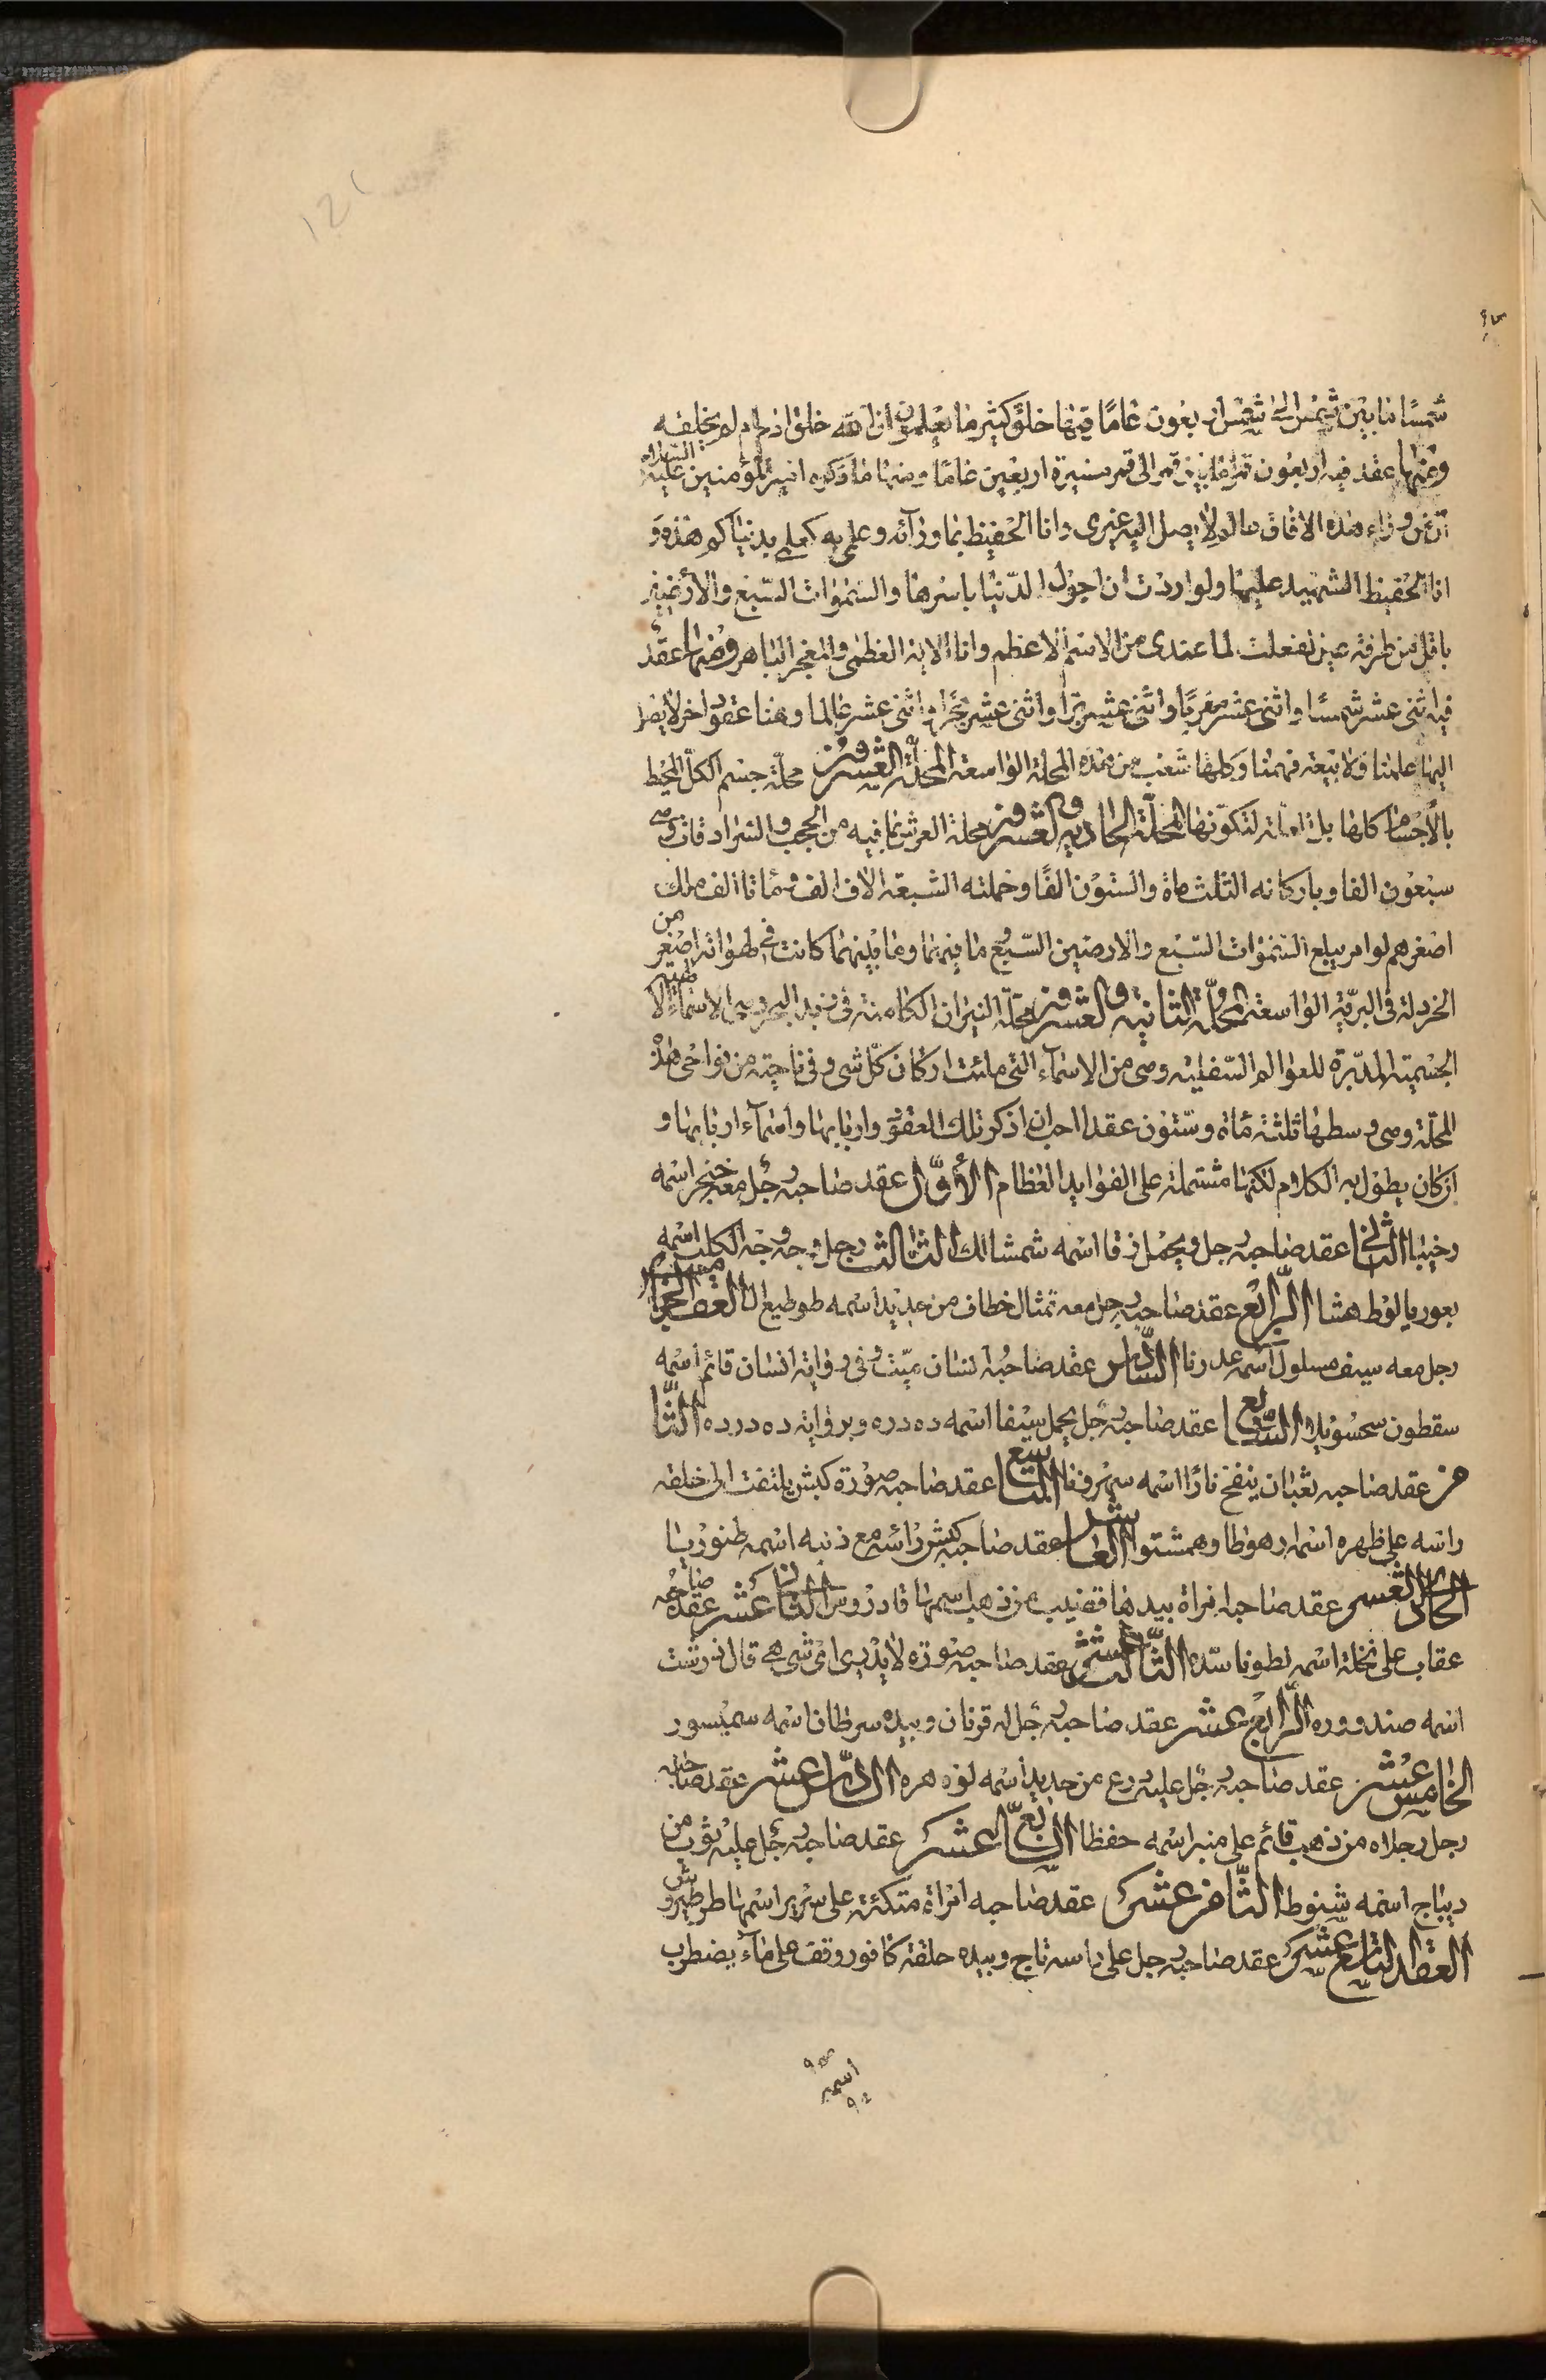 شمسًا ما بين شمس الى شمس اربعون عامًا فيها خلق كثير ما يعلمون ان الله خلق ادم ام لم يخلقه
ومنها عقد فيه اربعون قمرًا ما بين قمر الى قمر مسيرة اربعين عامًا ومنها ما ذكره امير المؤمنين عليه السلام
ان من وراء هذه الافاق عالم لا يصل اليه غيرى وانا الحفيظ بما ورآئه وعلمى به كعلمى بدنياكم هذه و
انا الحفيظ الشهيد عليها ولو اردت ان اجول الدنيا باسرها والسموات السبع والأرضين
باقل من طرفة عين لفعلت لما عندى من الاسم الاعظم وانا الاية العظمى والمعجز الباهر ومنها عقد
فيه اثنى عشر شمسًا واثنى عشر مغربًا واثنى عشر برًا واثنى عشر بحرًا واثنى عشر عالما وهنا عقود اخر لا يصل
اليها علمنا ولا يبتغه فهمنا وكلها شعب من هذه المحلة الواسعة المحلة العشرون محلة جسم الكل المحيط
بالأجسام كلها بل لتكونها المحلة الحادية والعشرون محلة العرش بما فيه من الحجب والسرادقات وهى
سبعون الفا وباركانه الثلث ماة والستون الفًا وحملته السبعة الاف الف ومأتا الف ملك
اصغرهم لو امر يبلع السموات السبع والارضين السبع وما فيهما وما بينهما كانت فى لهواته اصغر من
الخردلة فى البرية الواسعة المحلة الثانية والعشرون محلة النيران الكامنة فى زبد البحر وهى الاسماء
الجسمية المدبرة للعوالم السفلية وهى من الاسمآء التى ملئت اركان كل شىء وفى ناحية من نواحى هذه
المحلة وهى وسطها ثلثة مائة وستون عقدا احب ان اذكر تلك العقود واربابها واسمآء اربابها و
ان كان يطول به الكلام لكنها مشتملة على الفوايد العظام الأول عقد صاحبه رجل معه خنجر اسمه
وخيبا الثانى عقد صاحبه رجل ويحمل زقا اسمه شمشالك الثالث رجل وجهه وجه الكلب اسمه
بعوريالوط هشا الرابع عقد صاحبه رجل معه تمثال خطاف من حديد اسمه طوطيع العقد الخامس
رجل معه سيف مسلول اسمه عدرنا السادس عقد صاحبه انسان ميت وفى رواية انسان قائم اسمه
سقطون سحسويلا السابع عقد صاحبه رجل يحمل سيفا اسمه ده دره وبرواية ده درده الثا
من عقد صاحبه ثعبان ينفخ نارًا اسمه سمرفنا التاسع عقد صاحبه صورة كبش يلتفت الى خلفه
راسه على ظهره اسمه ارهوطا وهمشتوا العاشر عقد صاحبه كبش رأسه مع ذنبه اسمه طنوريا
الحادى العشر عقد صاحبه امراة بيدها قضيب من ذهب اسمها قادروس الثانى عشر عقد صاحبه
عقاب على نخلة اسمه لطوناسده الثالث عشر عقد صاحبه صورة لا يدرى اى شى هى قال
اسمه صندووره الرابع عشر عقد صاحبه رجل له قرنان وبيده سرطان اسمه سميسور
الخامس عشر عقد صاحبه رجل عليه درع من حديد اسمه لوه هره السادس عشر عقد صاحبه
رجل رجلاه من ذهب قائم على منبر اسمه حفظا السابع عشر عقد صاحبه رجل عليه ثوب من
ديباج اسمه شنوط الثامن عشر عقد صاحبه امراة متكئة على سرير اسمها طرطيروش
العقد التاسع عشر عقد صاحبه رجل على راسه تاج وبيده حلقة كافور وقف على مآء يضطرب
اسمه